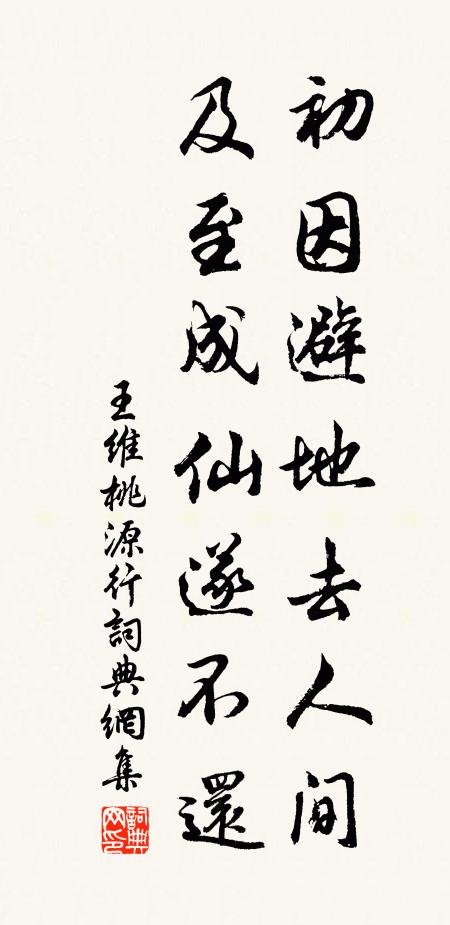 初因避地去人间
及至成仙遂不還
王维桃源行詞典網集
詞典網印